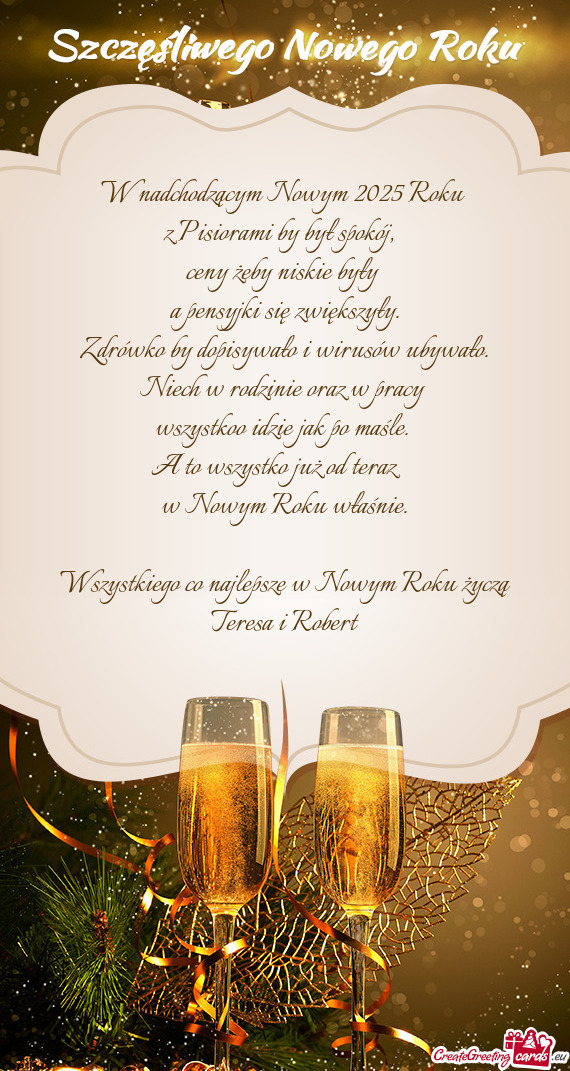 Szczęśliwego Nowego Roku
W nadchodzącym Nowym 2025 Roku
z Pisiorami by był spokój,
ceny żeby niskie były
a pensyjki się zwiększyły.
Zdrówko by dopisywało i wirusów ubywało.
Niech w rodzinie oraz w pracy
wszystkoo idzie jak po maśle.
A to wszystko już od teraz
w Nowym Roku właśnie.
Wszystkiego co najlepszę w Nowym Roku życzą
Teresa i Robert
CreateGreetingcards.eu